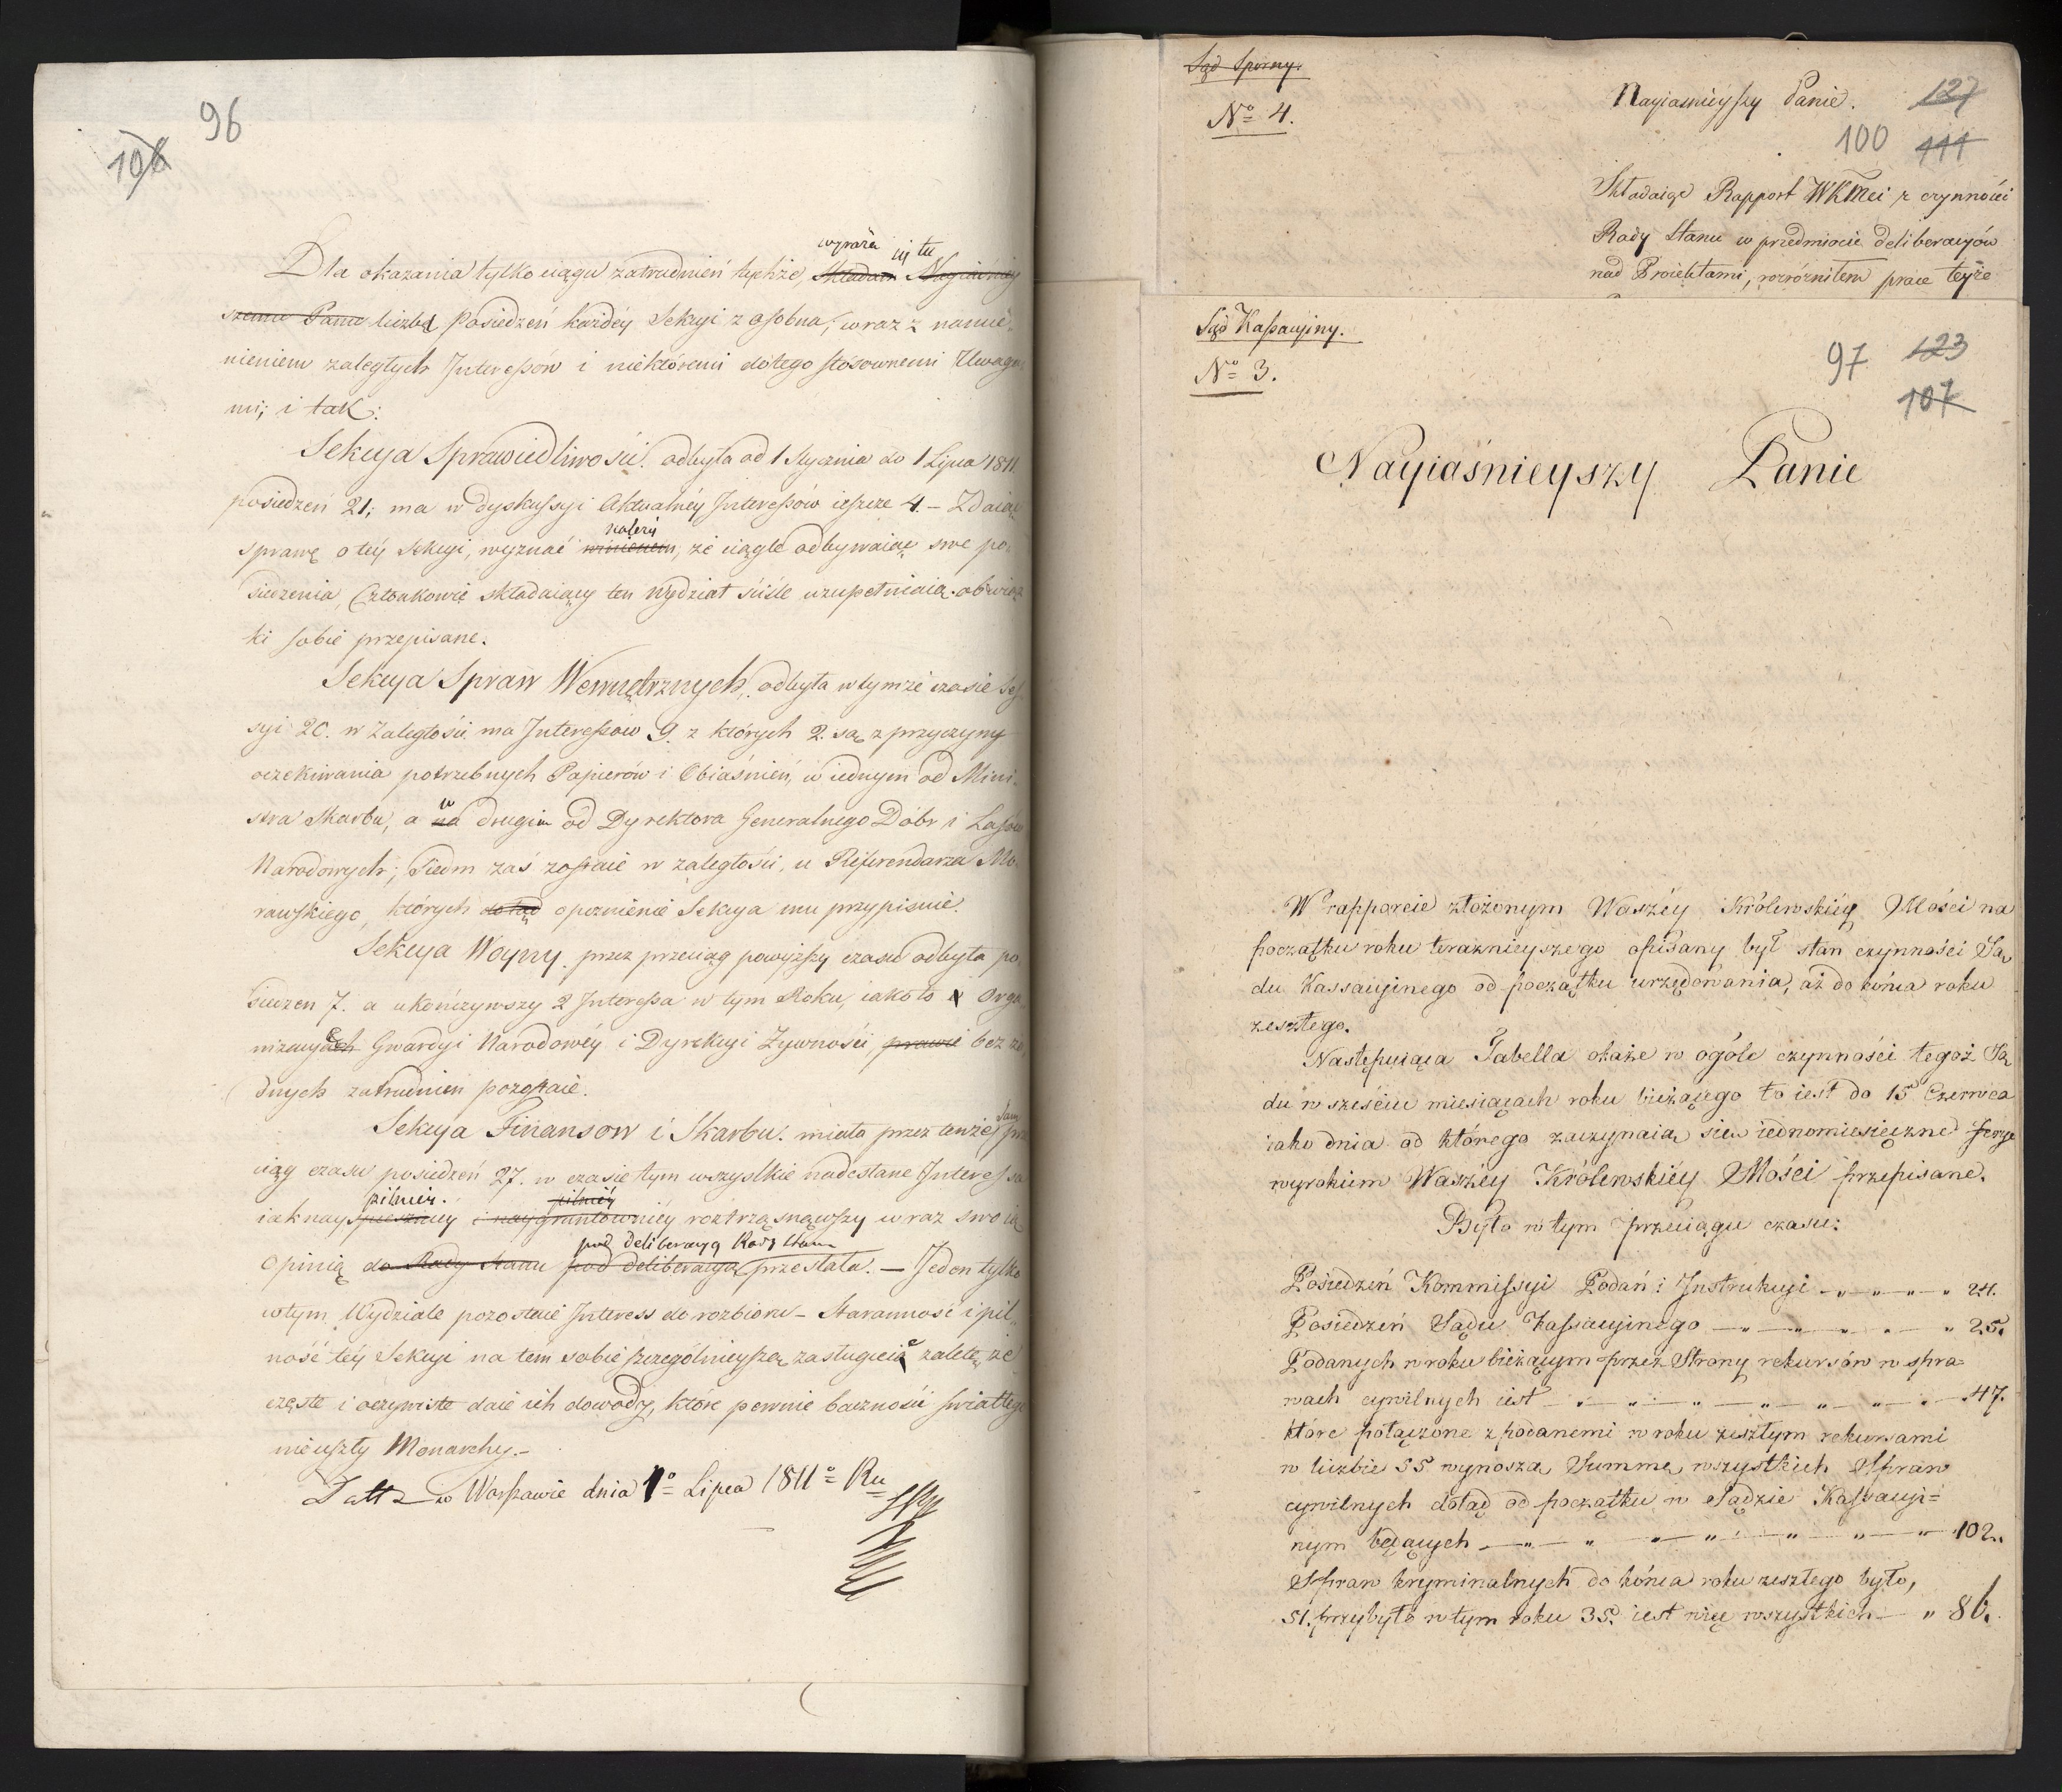 96
106
Dla okazania tylko ciągu zatrudnień tychże, składam Nayiaśniey
wyraża się tu
szemu Panu liczbę Posiedzeń każdéy Sekcyi z osobna, wraz z namie-
nieniem zaległych Interessów i niektóremi dotego stósownemi Uwaga
mi; i tak:
Sekcya Sprawiedliwości. odbyła od 1 Stycznia do 1 Lipca 1811.
posiedzeń 21; ma w dyskussyi Aktualnéy Interessów ieszcze 4. – Zdaiąc
należy
sprawę o téy Sekcyi, wyznać winienem, że ciągle odbywaiąc swe po-
siedzenia, Członkowie składaiący ten Wydział ściśle uzupełniaią obwiąz
ki sobie przepisane.
Sekcya Spraw Wewnętrznych, odbyła w tymże czasie Ses
syi 20. w Zaległości ma Interessow 9. z których 2. są z przyczyny
oczekiwania potrzebnych Papierów i Obiaśnień, w iednym od Mini-
stra Skarbu, a na w drugim od Dyrektora Generalnego Dóbr i Lasów
Narodowych; Siedm zaś zostaie w zaległości, u Referendarza Mo
rawskiego, których dotąd opoznienie Sekcya mu przypisuie.
Sekcya Woyny. przez przeciąg powyższy czasu odbyła po
siedzen 7. a ukończywszy 2 Interessa w tym Roku, iako to Orga
nizacyach Gwardyi Narodowéy i Dyrekcyi Żywności, prawie bez ża
dnych zatrudnień pozostaie.
Sekcya Finansow i Skarbu. miała przez tenże sam prze
ciąg czasu posiedzeń 27. w czasie tym wszystkie nadesłane Interessa
pilniey. pilniéy
iak nayspieszniey i naygruntowniey roztrząsnąwszy wraz swoią
pod deliberacyą Rady Stanu
Opinią do Rady Stanu pod deliberacyą przesłała. – Jeden tylko
w tym Wydziale pozostaie Interess do rozbioru – Staranność i pil-
ność téy Sekcyi na tem sobie szczególnieyszą zasługuie zaletę, że
częste i oczywiste daie ich dowody, które pewnie baczności światłego
nie uszły Monarchy. –
Datt w Warszawie dnia 1º Lipca 1811º Ru
Sąd Sporny.
Nº 4.
Nayiasnieyszy Panie.
127
100 111
Składaiąc Rapport WKMci z czynności
Rady Stanu w przedmiocie deliberacyów
nad Proiektami, rozróżniłem prace teyże
Sąd Kassacyiny.
Nº 3.
97 123
107
Nayiaśnieyszy Panie
W rapporcie złożonym Waszéy Królewskiéy Mości na
początku roku teraznieyszego opisany był stan czynności Są
du Kassacyinego od początku urzędowania, aż do końca roku
zeszłego.
Następuiąca Tabella okaże w ogóle czynności tegoż Są
du w sześciu miesiącach roku bieżącego to iest do 15 Czerwca
iako dnia od którego zaczynaią się iednomiesięczne ferye
wyrokiem Waszéy Królewskiéy Mości przepisane.
Było w tym przeciągu czasu:
Posiedzeń Kommissyi Podań i Instrukcyi — „ — „ — „ — „ 24.
Posiedzeń Sądu Kassacyinego — „ — „ — „ — „ 25.
Podanych w roku bieżącym przez Strony rekursów w spra-
wach cywilnych iest — „ — „ — „ — „ — „ — „ — 47.
które połączone z podanemi w roku zeszłym rekursami
w liczbie 55 wynoszą Summę wszystkich Spraw
cywilnych dotąd od początku w Sądzie Kassacyi=
nym będących — „ — „ — „ — „ — „ — „ — „ 102.
Spraw kryminalnych do końca roku zeszłego było,
51. przybyło w tym roku 35. iest więc wszystkich — „ 86.